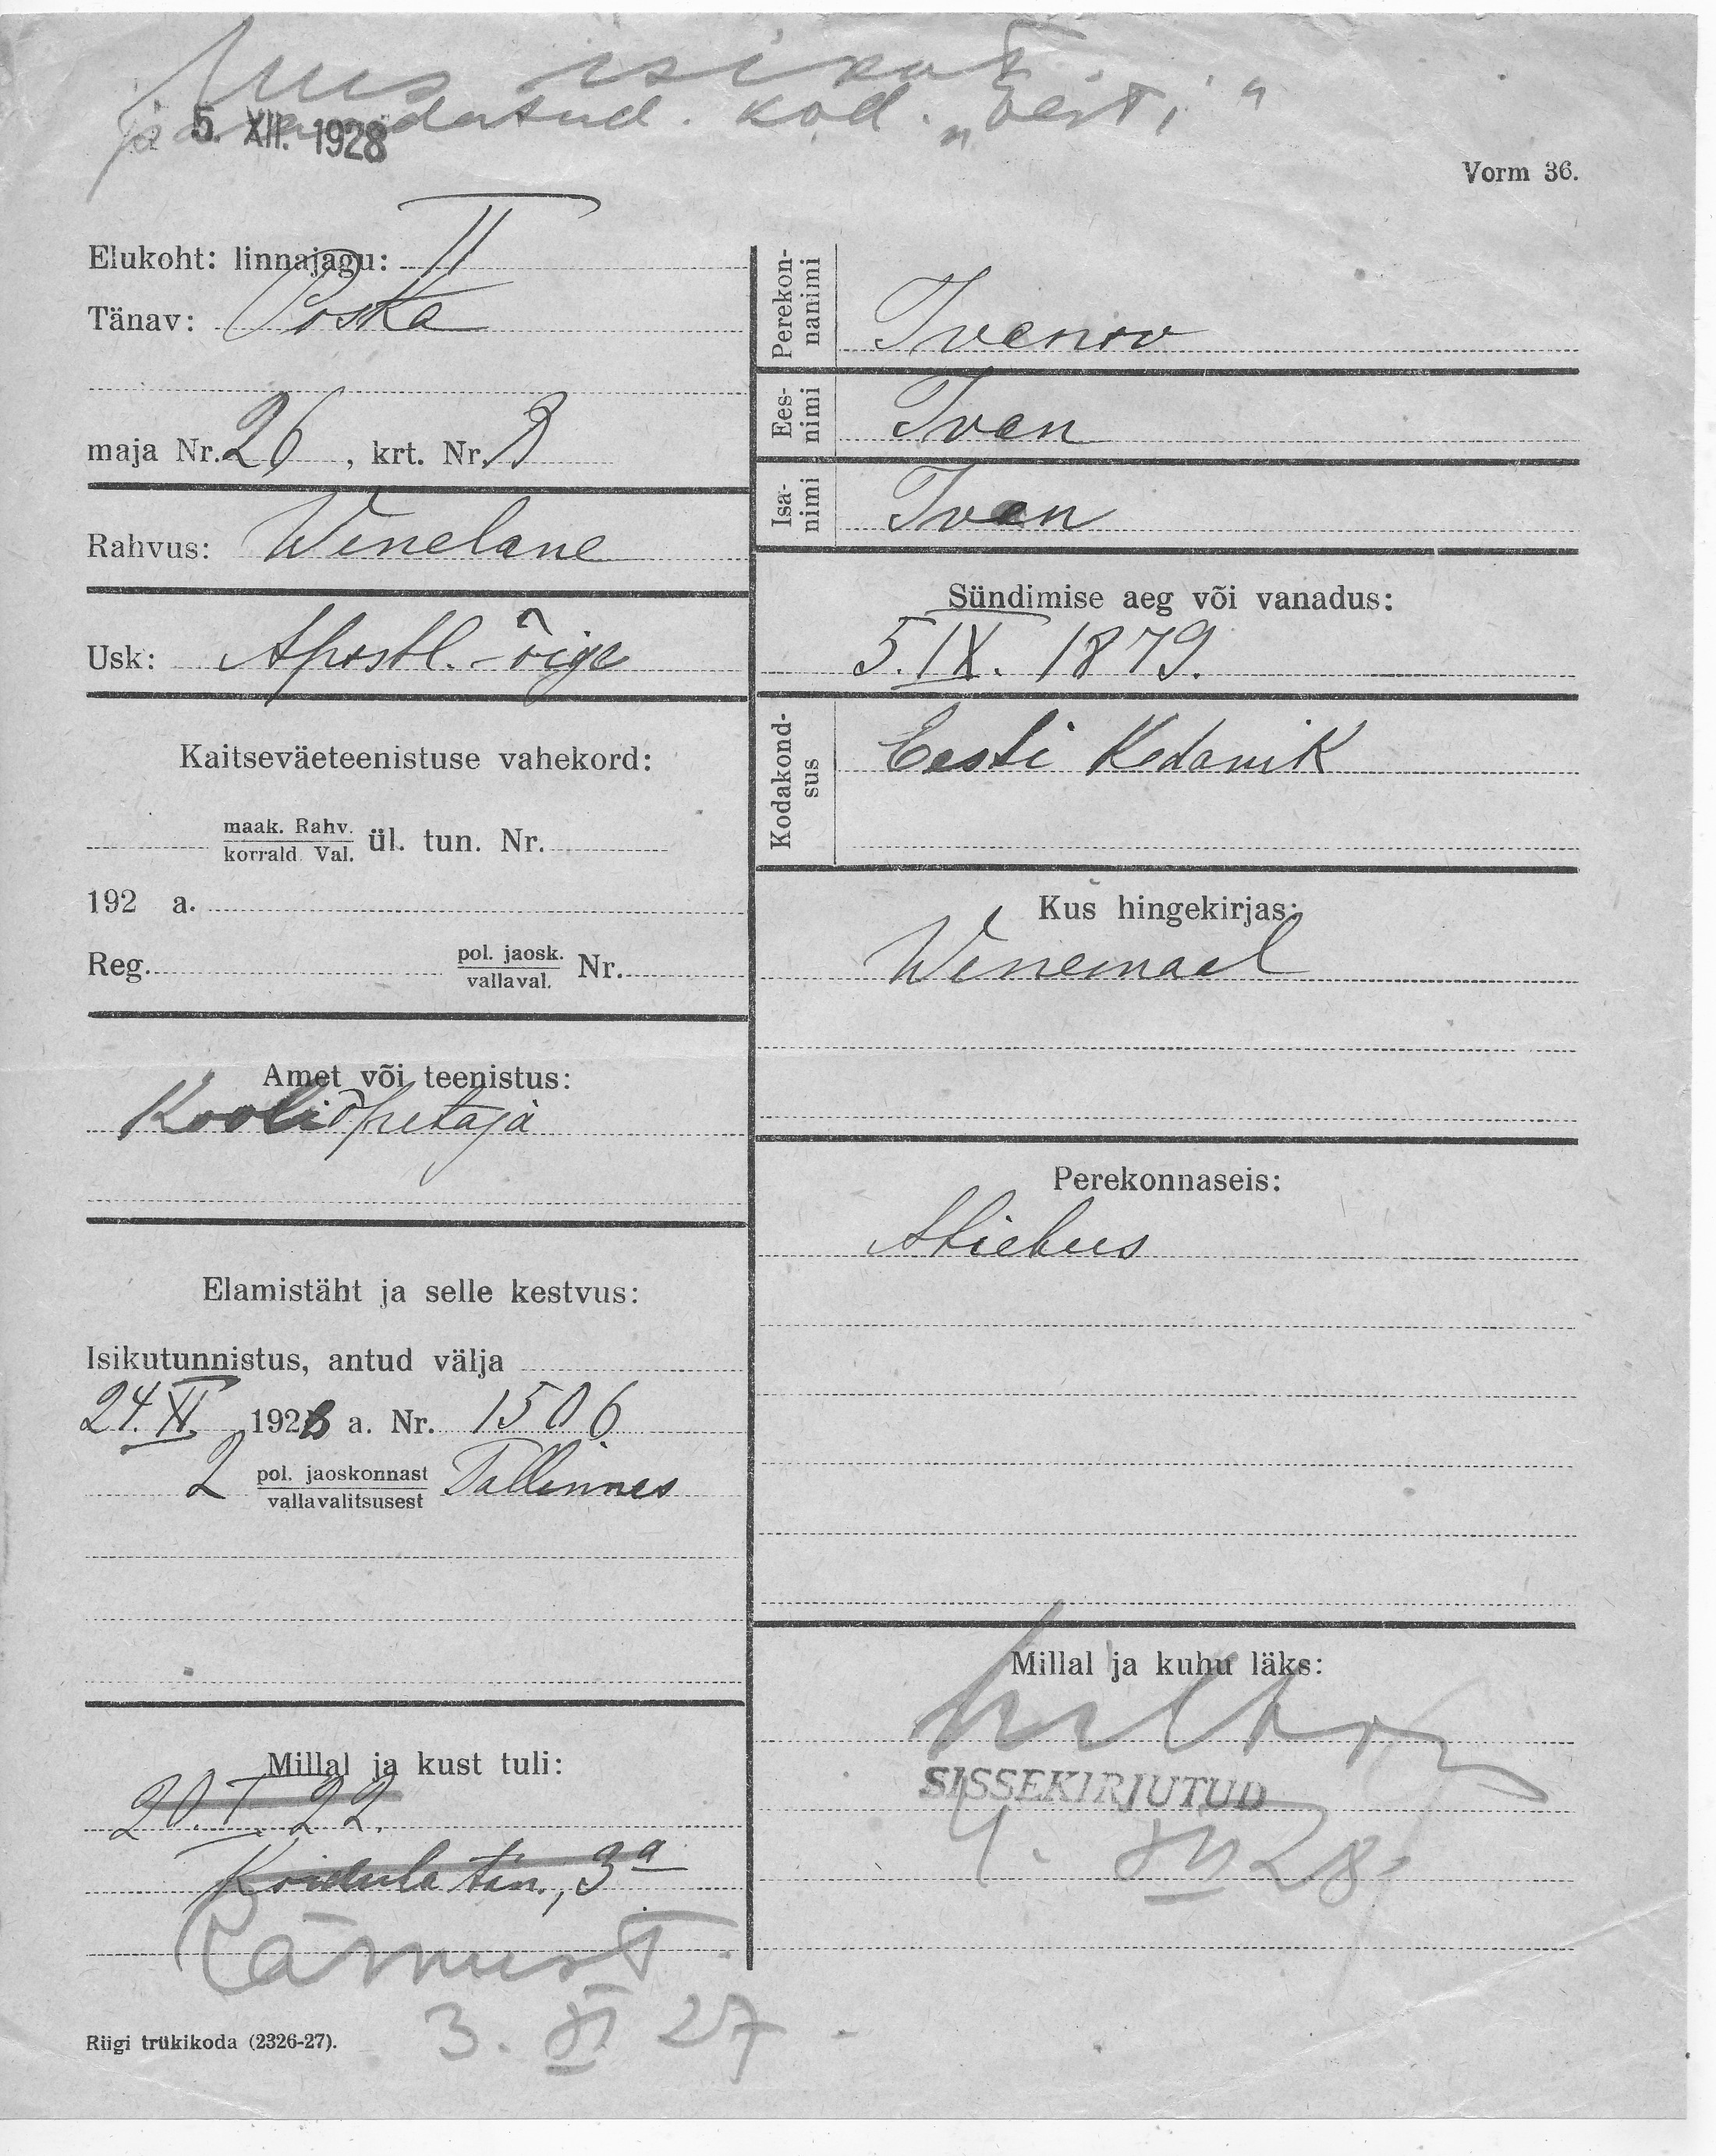 isikut
parandatud. kod. „Eesti"
5. XII. 1928
Vorm 36.
Elukoht: linnajagu: II
Tänav: Poska
maja Nr. 26, krt. Nr. 3
Rahvus: Winelane
Usk: Apostl.-õige
Kaitseväeteenistuse vahekord:
maak. Rahv.
korrald. Val. ül. tun. Nr.
192 a.
Reg. pol. jaosk.
vallaval. Nr.
Amet või teenistus:
Kooliõpetaja
Elamistäht ja selle kestvus:
Isikutunnistus, antud välja
24. XI 1928 a. Nr. 1506
2 pol. jaoskonnast
vallavalitsusest Tallinnas
Millal ja kust tuli:
20. I. 22.
Koidula tän., 3a
Pärnust
3. XI 27
Riigi trükikoda (2326-27).
Perekon-
nanimi Ivanov
Ees-
nimi Ivan
Isa-
nimi Ivan
Sündimise aeg või vanadus:
5. IX. 1879.
Kodakond-
sus Eesti Kodanik
Kus hingekirjas:
Winemaal
Perekonnaseis:
Abielus
Millal ja kuhu läks:
SISSEKIRJUTUD
4. XII 28